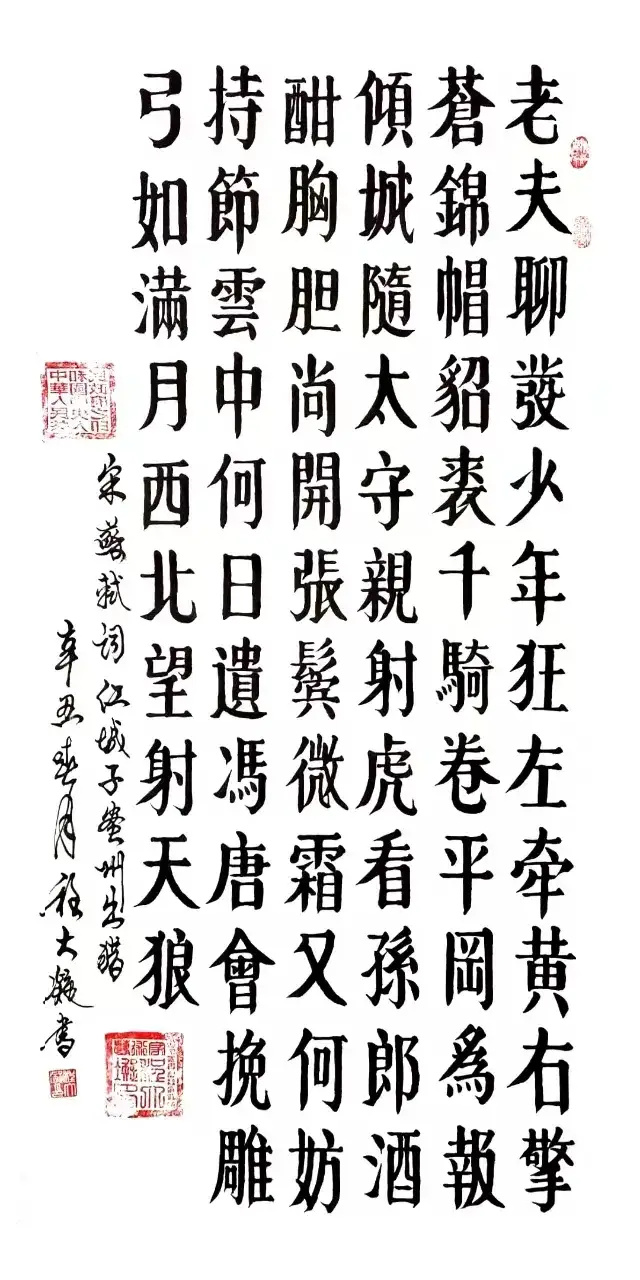 老夫聊發少年狂左牽黄右擎
蒼錦帽貂裘千騎卷平岡爲報
傾城隨太守親射虎看孫郎酒
酣胸胆尚開張鬢微霜又何妨
持節雲中何日遣馮唐會挽雕
弓如滿月西北望射天狼
宋蘇軾詞江城子密州出猎
辛丑春月程大書